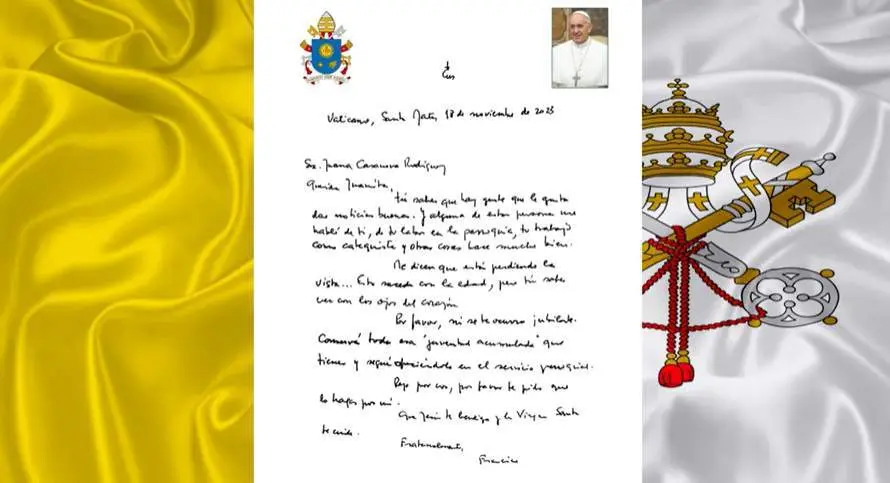 Vaticano, Santa Marta, 18 de noviembre de 2023
Sra. Juana Casanova Rodríguez
Querida Juanita,
tú sabes que hay gente que le gusta
dar noticias buenas. Y alguna de estas personas me
habló de ti, de tu labor en la parroquia, tu trabajo
como catequista y otras cosas hace mucho bien.
Me dicen que estás perdiendo la
vista... Esto sucede con la edad, pero tú sabes
ver con los ojos del corazón.
Por favor, ni se te ocurra jubilarte.
Conservá toda esa "juventud acumulada" que
tienes y seguí ofreciéndola en el servicio parroquial.
Rezo por vos, por favor te pido que
lo hagas por mí.
Que Jesús te bendiga y la Virgen Santa
te cuide.
Fraternalmente,
Francisco